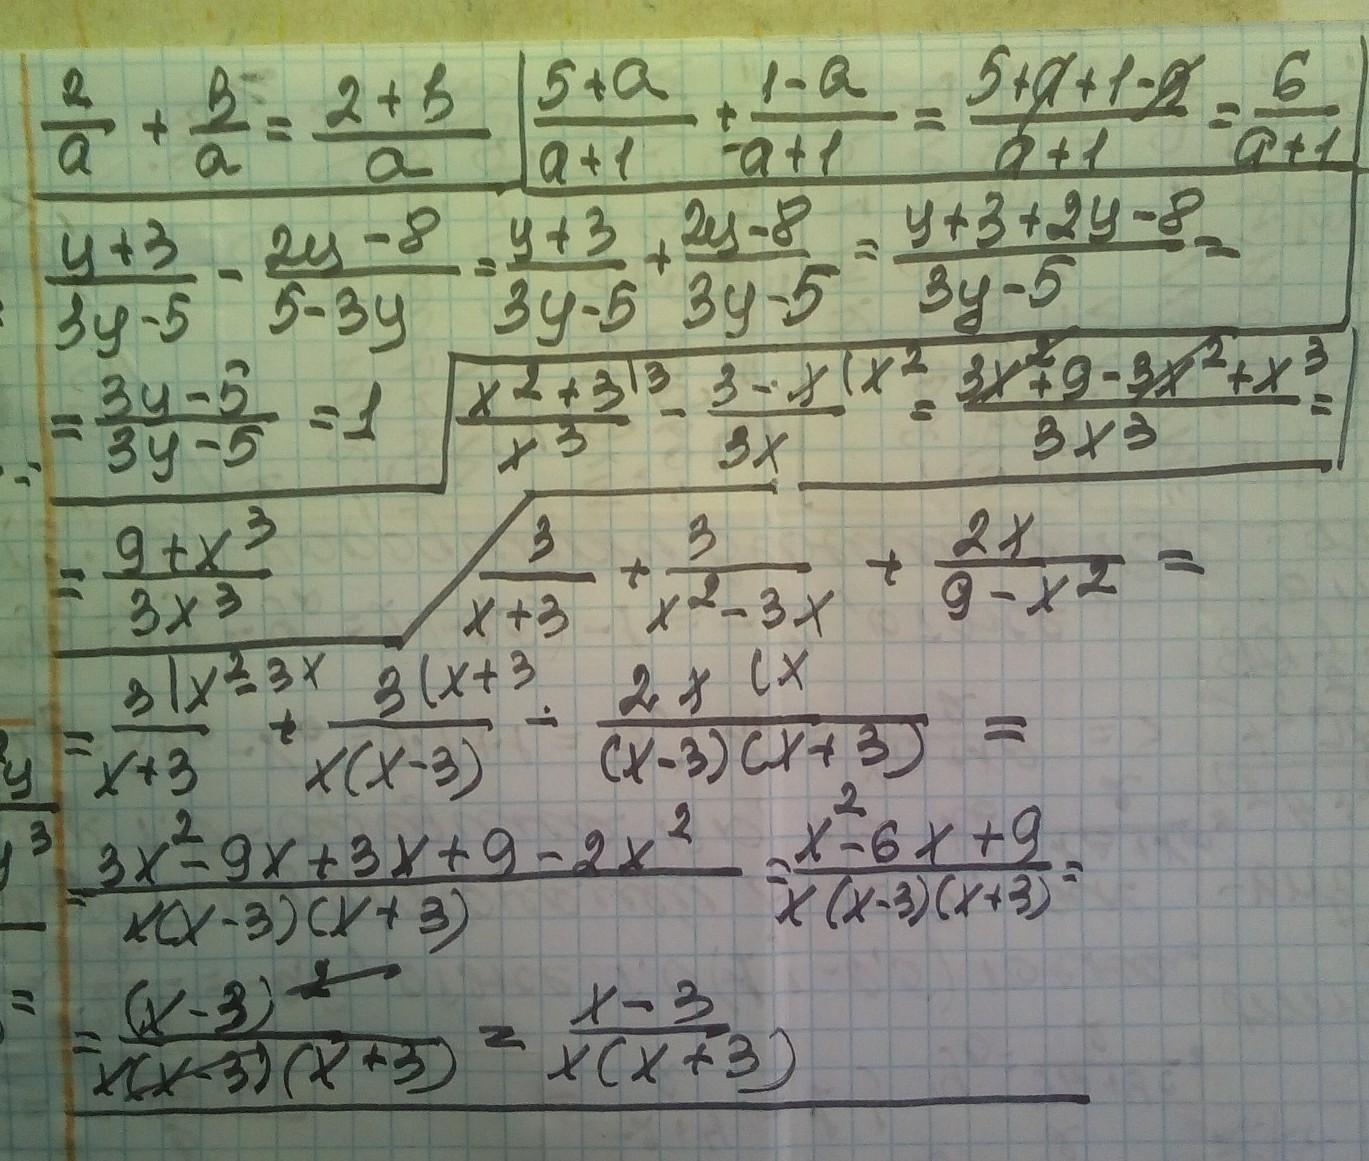 2/a + b/a = (2+b)/a
(5+a)/(a+1) + (1-a)/(a+1) = (5+a+1-a)/(a+1) = 6/(a+1)
(y+3)/(3y-5) - (2y-8)/(5-3y) = (y+3)/(3y-5) + (2y-8)/(3y-5) = (y+3+2y-8)/(3y-5) =
= (3y-5)/(3y-5) = 1
(x²+3)/x³ |3 - (3-x)/3x (x² = (3x²+9-3x²+x³)/3x³ =
= (9+x³)/3x³
3/(x+3) + 3/(x²-3x) + 2x/(9-x²) =
= 3/(x+3) |x²-3x + 3/(x(x-3)) (x+3 - 2x/((x-3)(x+3)) (x =
= (3x²-9x+3x+9-2x²)/(x(x-3)(x+3)) = (x²-6x+9)/(x(x-3)(x+3)) =
= (x-3)²/(x(x-3)(x+3)) = (x-3)/(x(x+3))